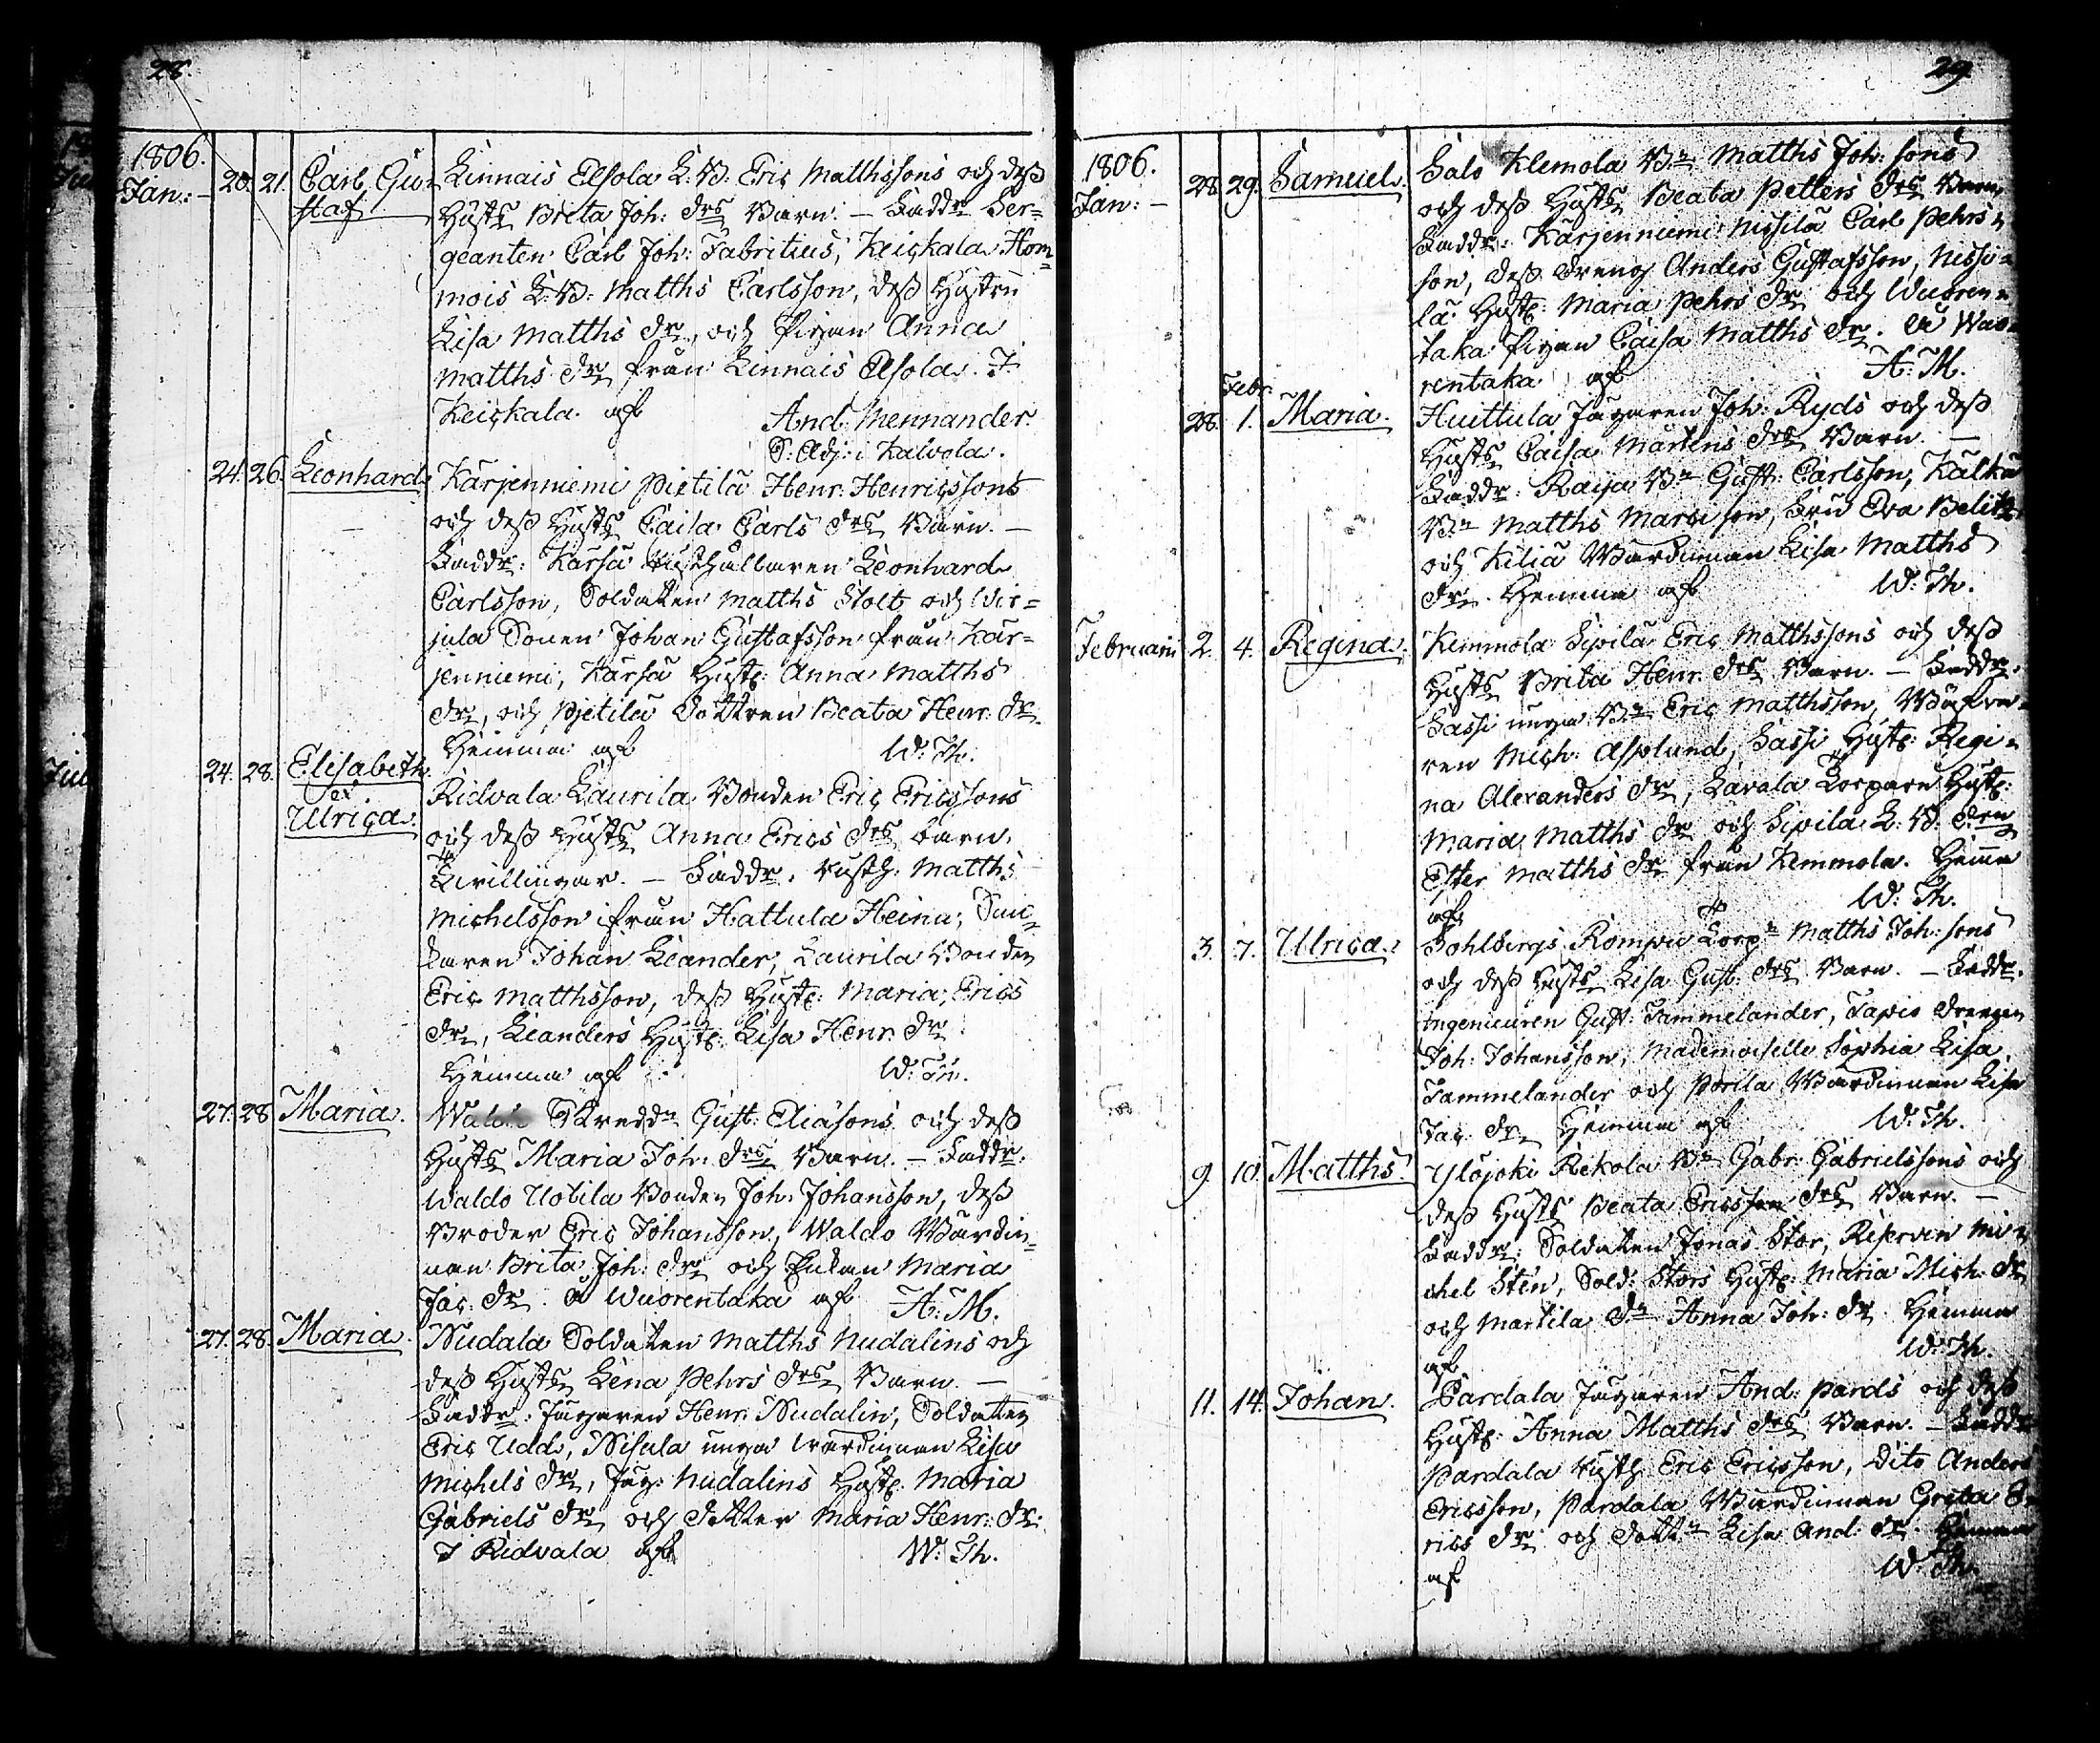 28.
1806.
Jan: – 20. 21. Carl Gu- Linnais Elsola L: B: Eric Matthssons och dess
staf Hustrs Brita Joh: drs Barn. – Faddr Ser-
geanten Carl Joh: Fabritius, Keickala Hom-
mois L: B: Matths Carlsson, dess Hustru
Lisa Matths dr, och Pigan Anna
Matths dr från Linnais Elsola. I
Keickala af And. Mennander.
S: Adj: i Kalvola.
24. 26. Leonhard. Karjenniemi Pietilä Henr: Henricssons
och dess Hustrs Caisa Carls drs Barn. –
Faddr: Karsa Rusthållaren Leonhard
Carlsson, Soldaten Matths Stolt och Wir-
jula Sonen Johan Gustafsson från Kar-
jenniemi, Karsa Hustr: Anna Matths
dr, och Pjetilä Dottren Beata Henr: dr.
Hemma af W: Th.
24. 28. Elisabeth Ridvala Laurila Bonden Eric Ericssons
et
Ulrica. och dess Hustrs Anna Erics drs barn,
Tvillingar. – Faddr. Rusth: Matths
Michelsson ifrån Hattula Heinu, Snic-
karen Johan Leander, Laurila Bonden
Eric Matthsson, dess Hustr: Maria Erics
dr, Leanders Hustr: Lisa Henr: dr.
Hemma af W: Th.
27. 28 Maria. Skreddn Gust: Eliäsons och dess
Hustrs Maria Joh: drs Barn. – Faddr.
Waldo Uotila Bonden Joh: Johansson, dess
Broder Eric Johansson, Waldo Wärdin-
nan Brita Joh: dr och Enkan Maria
Jac: dr. å Wuorentaka af A: M.
27. 28. Maria. Nudala Soldaten Matths Nudalins och
dess Hustrs Lena Pehrs drs Barn. –
Faddr: Jägaren Henr: Nudalin, Soldaten
Eric Udd, Nisula unga wärdinnan Lisa
Michels dr, Jäg: Nudalins Hustr: Maria
Gabriels dr och dotter Maria Henr: dr.
I Ridvala af W: Th.
29
1806.
Jan: – 28. 29. Samuel. Salo Klemola Bn Matths Joh: sons
och dess Hustrs Beata Petters drs Barn.
Faddr: Karjenniemi Nissilä Carl Pehrs-
son, dess Dreng Anders Gustafsson, Nissi-
lä Hustr: Maria Pehrs dr och Wuoren-
taka Pigan Caisa Matths dr. å Wuo-
rentaka af A: M.
Febr:
28. 1. Maria. Huittula Jägaren Joh: Ryds och dess
Hustrs Caisa Mårtens drs Barn. –
Faddr: Raija Bn Gust: Carlsson, Kalka
Bn Matths Marc: son, Fru Eva Belitz
och Kiliä Wärdinnan Lisa Matths
dr. Hemma af W: Th.
Februarii 2. 4. Regina. Kemmola Sipilä Eric Matthssons och dess
Hustrs Brita Henr: drs Barn. – Faddr.
Sassi unga Bn Eric Matthsson, Wäfva-
ren Mich: Asplund, Sassi Hustr: Regi-
na Alexanders dr, Lavala Torparn Hustr:
Maria Matths dr och Sipilä L: B: dren
Ester Matths dr från Kemmola. Hemma
af W: Th.
3. 7. Ulrica. Sohlbergs Rompu Torpn Matths Joh: sons
och dess Hustrs Lisa Gust: drs Barn. – Faddr.
Ingenieuren Gust: Tammelander, Tapis Drengen
Joh: Johansson, Mademoiselle Sophia Lisa
Tammelander och Porila Wärdinnan Lisa
Jac: dr Hemma af W: Th.
9. 10. Matths. Ylöjoki Rekola Bn Gabr: Gabrielssons och
dess Hustrs Beata Ericsson drs Barn. –
Faddr: Soldaten Jonas Stor, Reserven Mi-
chel Sten, Sold: Stors Hustr: Maria Mich: dr
och Martila Dn Anna Joh: dr. Hemma
af W: Th.
11. 14. Johan. Pardala Jägaren And: Pards och dess
Hustr: Anna Matths drs Barn. – Faddr
Pardala Rusth: Eric Ericsson, Dito Anders
Ericsson, Pardala Wärdinnan Greta E-
rics dr och Dottn Lisa And: dr. Hemma
af W: Th.